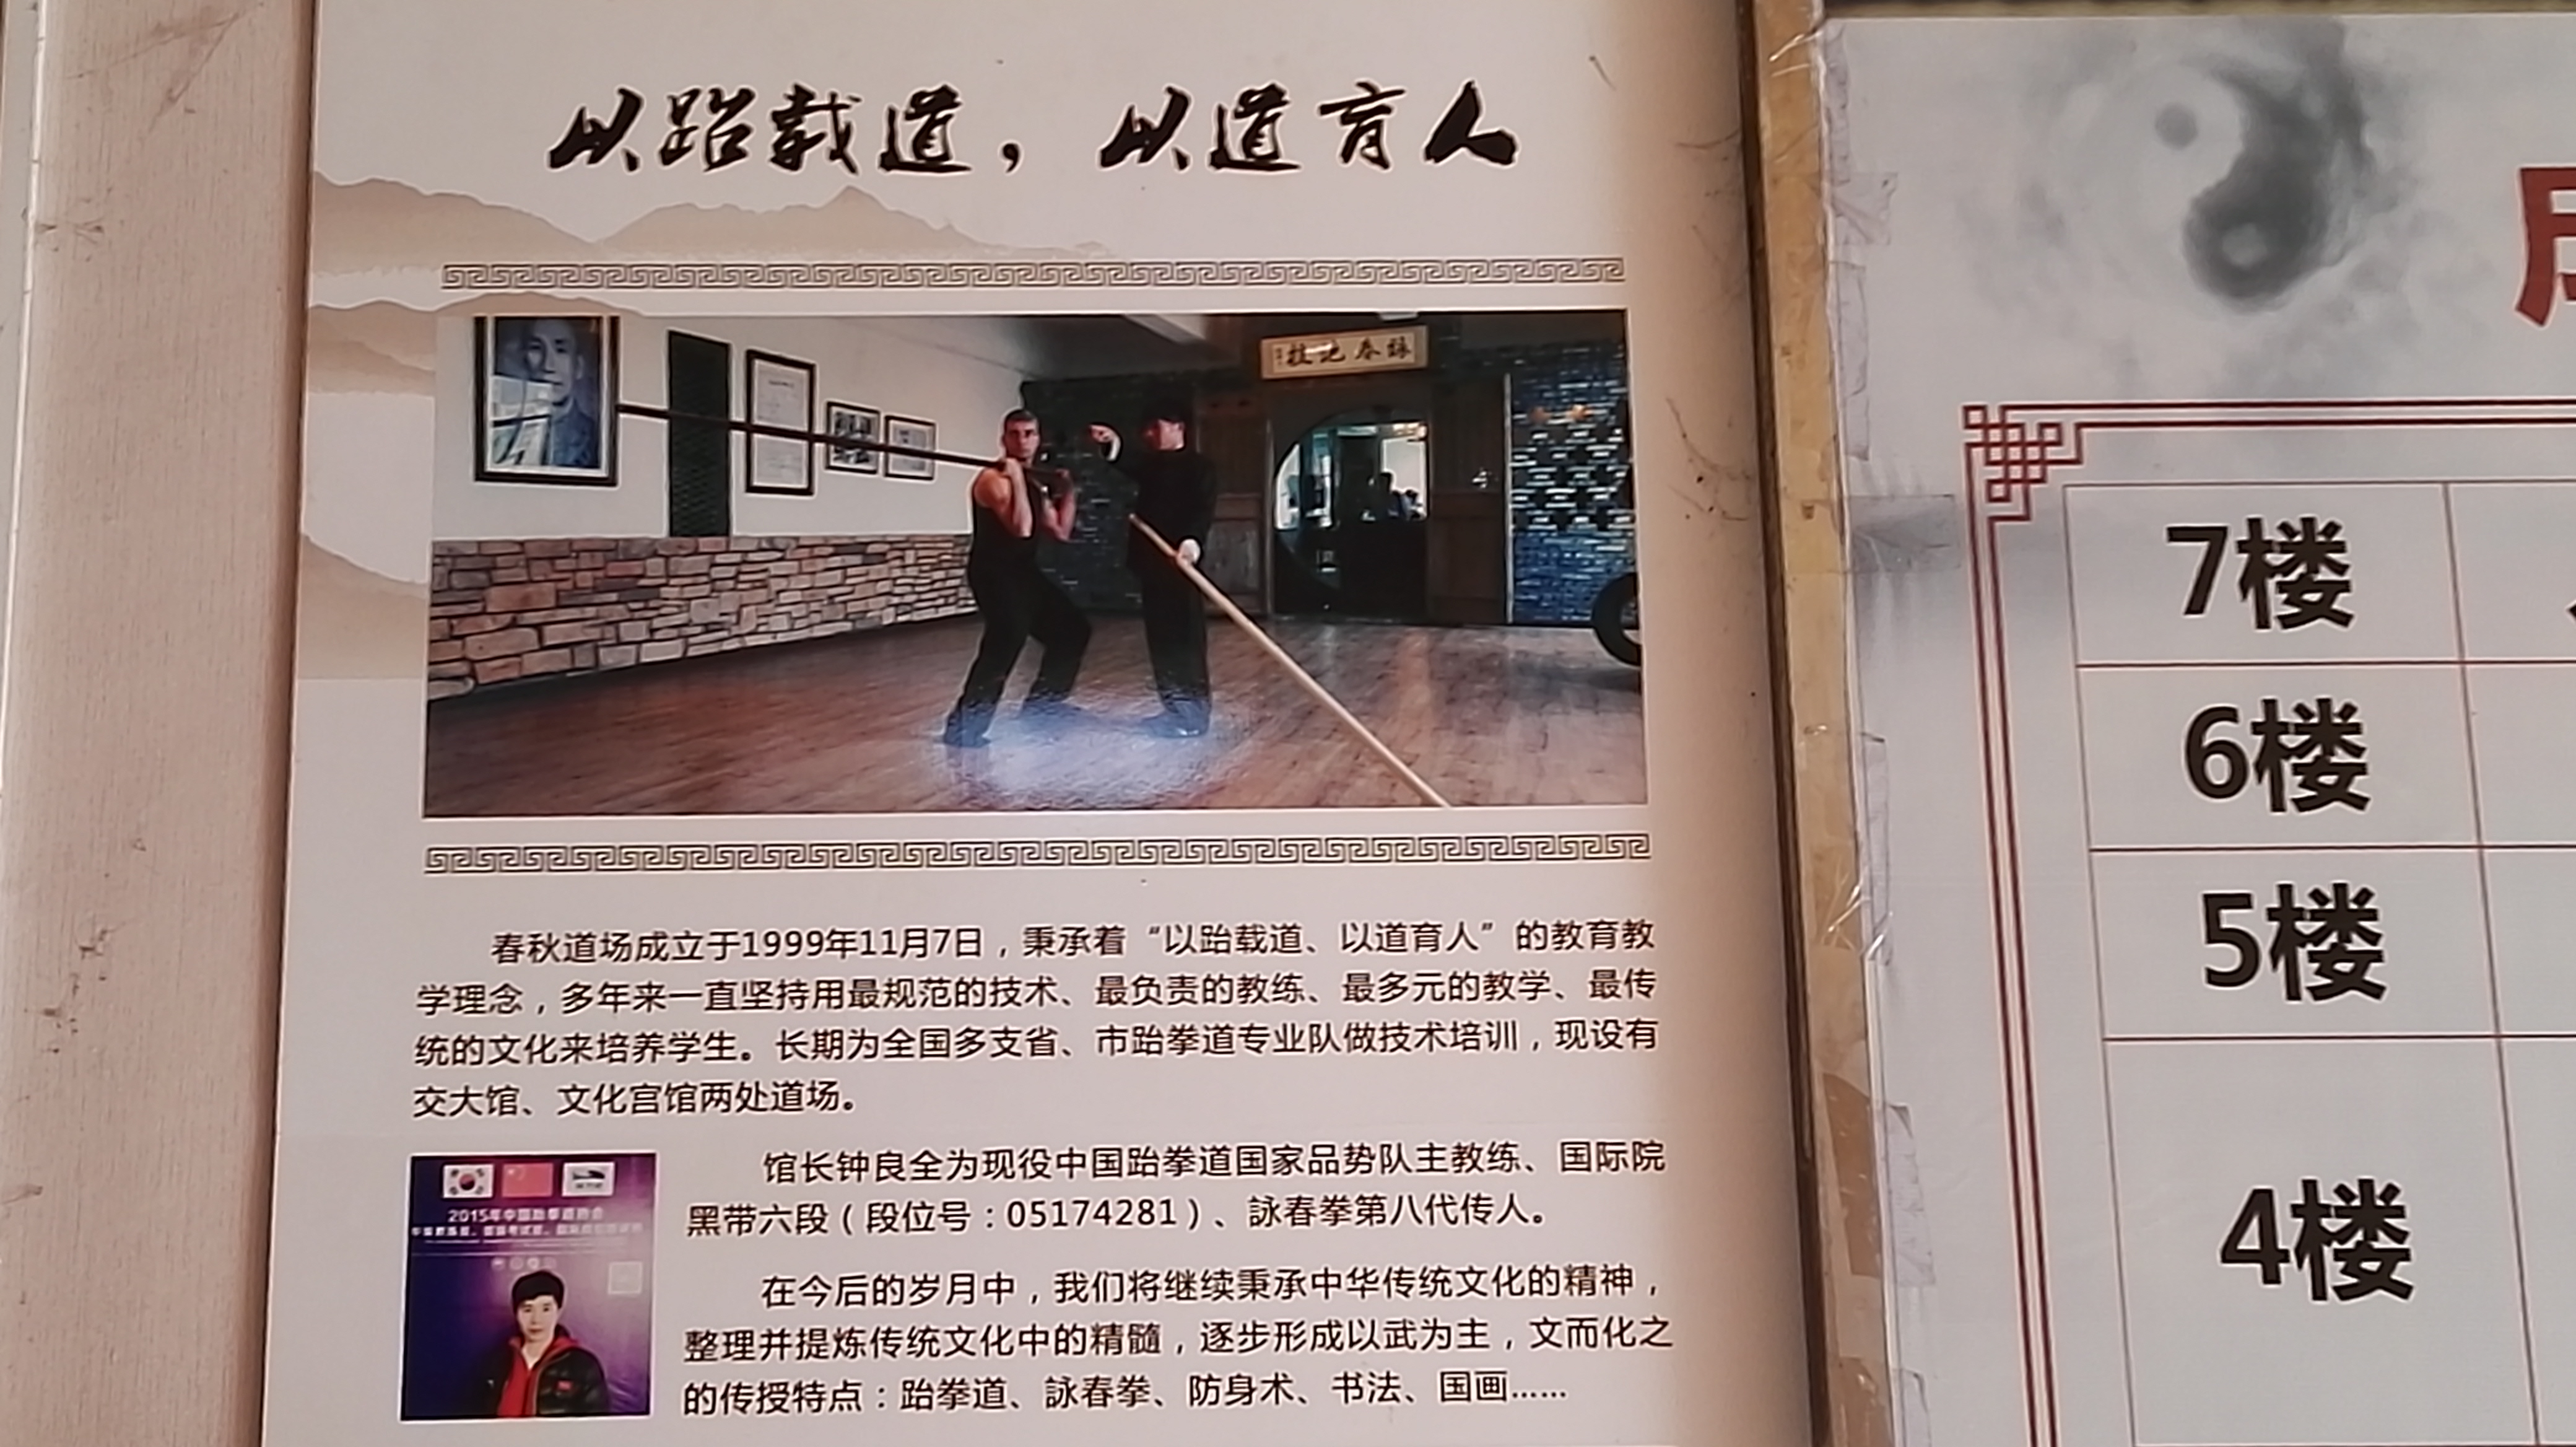 以跆载道，以道育人
春秋道场成立于1999年11月7日，秉承着“以跆载道、以道育人”的教育教
学理念，多年来一直坚持用最规范的技术、最负责的教练、最多元的教学、最传
统的文化来培养学生。长期为全国多支省、市跆拳道专业队做技术培训，现设有
交大馆、文化宫馆两处道场。
馆长钟良全为现役中国跆拳道国家品势队主教练、国际院
黑带六段（段位号：05174281）、詠春拳第八代传人。
2015年中国跆拳道协会
在今后的岁月中，我们将继续秉承中华传统文化的精神，
整理并提炼传统文化中的精髓，逐步形成以武为主，文而化之
的传授特点：跆拳道、詠春拳、防身术、书法、国画……
7楼
6楼
5楼
4楼